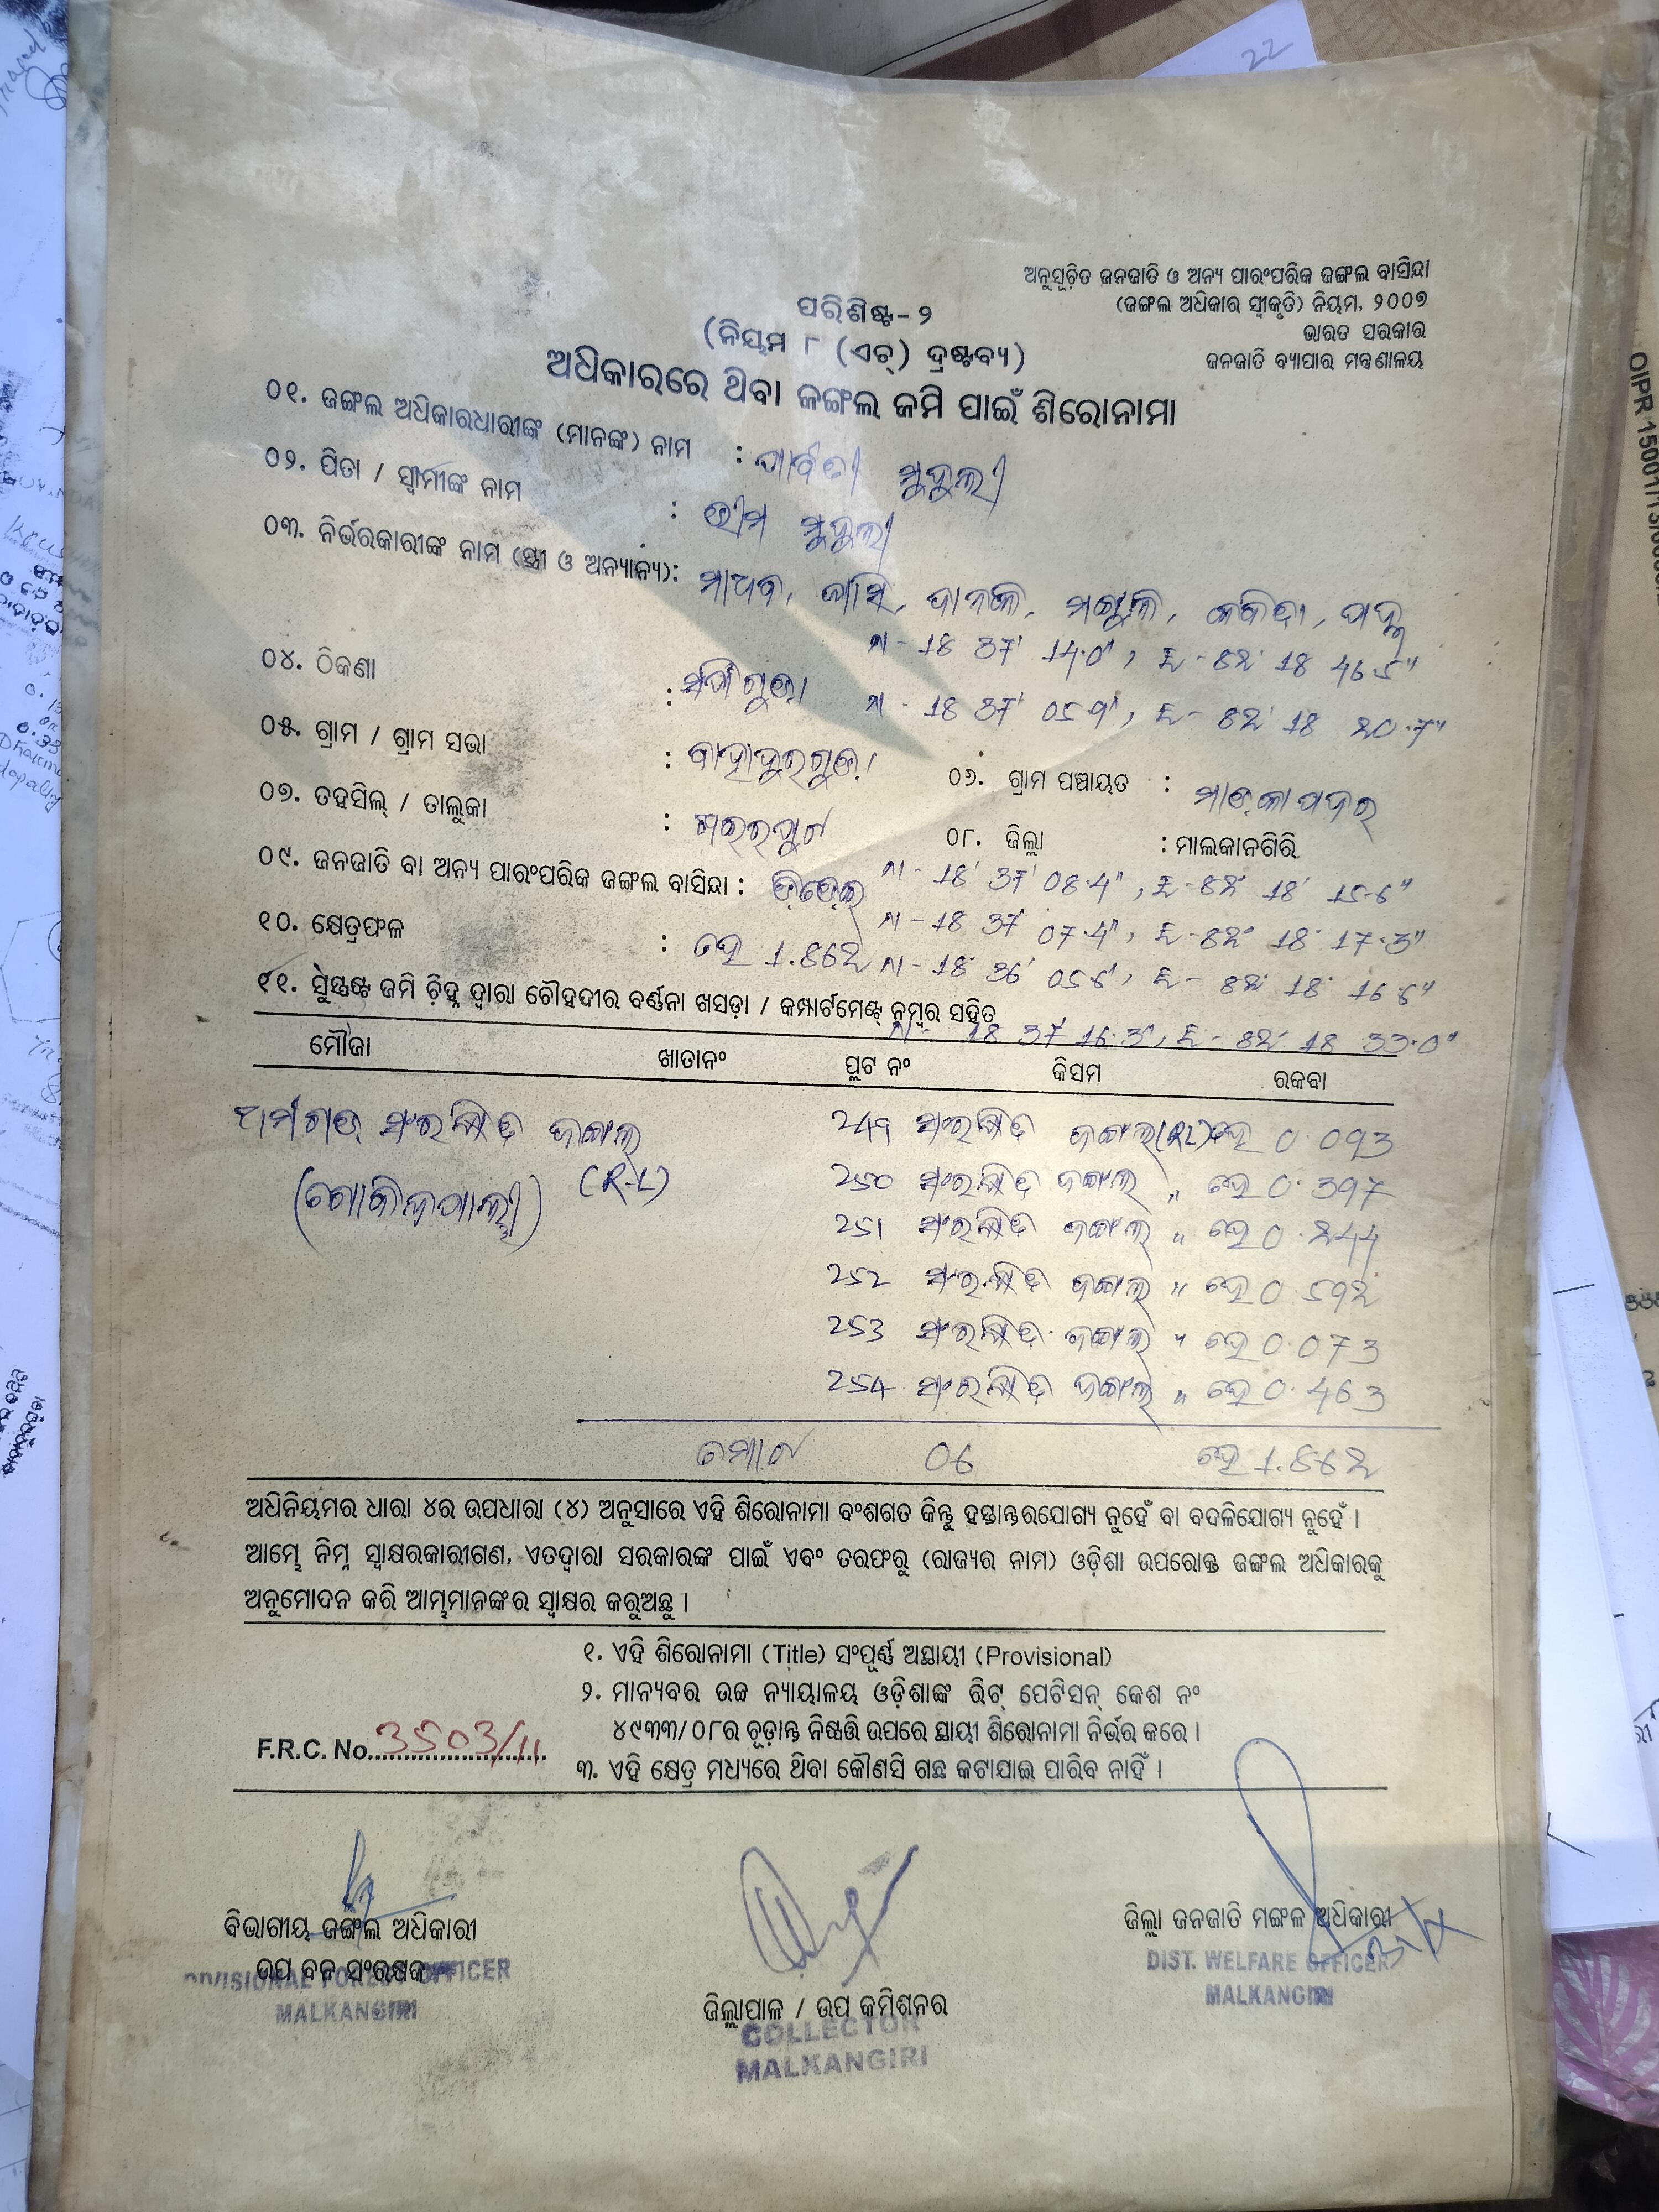 22
ଅନୁସୂଚିତ ଜନଜାତି ଓ ଅନ୍ୟ ପାରଂପରିକ ଜଙ୍ଗଲ ବାସିନ୍ଦା
(ଜଙ୍ଗଲ ଅଧିକାର ସ୍ୱୀକୃତି) ନିୟମ, ୨୦୦୭
ଭାରତ ସରକାର
ଜନଜାତି ବ୍ୟାପାର ମନ୍ତ୍ରଣାଳୟ
ପରିଶିଷ୍ଟ-୨
(ନିୟମ ୮ (ଏଚ୍) ଦ୍ରଷ୍ଟବ୍ୟ)
ଅଧିକାରରେ ଥିବା ଜଙ୍ଗଲ ଜମି ପାଇଁ ଶିରୋନାମା
୦୧. ଜଙ୍ଗଲ ଅଧିକାରଧାରୀଙ୍କ (ମାନଙ୍କ) ନାମ : ପାର୍ବତୀ ମୁଦୁଲୀ
୦୨. ପିତା / ସ୍ୱାମୀଙ୍କ ନାମ : ଭୀମ ମୁଦୁଲୀ
୦୩. ନିର୍ଭରକାରୀଙ୍କ ନାମ (ସ୍ତ୍ରୀ ଓ ଅନ୍ୟାନ୍ୟ): ମାଧବ,
18 37' 14.0", E-82° 18 46.5"
୦୪. ଠିକଣା :
18 37' 05.9", E-82° 18 20.7"
୦୫. ଗ୍ରାମ / ଗ୍ରାମ ସଭା : ବାହାଦୁରଗୁଡ଼ା
୦୬. ଗ୍ରାମ ପଞ୍ଚାୟତ : ମାଡ଼କାପଦର
୦୭. ତହସିଲ୍ / ତାଲୁକା : ଖଇରପୁଟ
୦୮. ଜିଲ୍ଲା : ମାଲକାନଗିରି
18° 37' 08.4", E-82° 18' 15.6"
୦୯. ଜନଜାତି ବା ଅନ୍ୟ ପାରଂପରିକ ଜଙ୍ଗଲ ବାସିନ୍ଦା :
18 37' 07.4", E-82° 18' 17.3"
୧୦. କ୍ଷେତ୍ରଫଳ : ହେ 1.862
18° 36' 05.6", E-82° 18' 16.6"
୧୧. ସୁସ୍ପଷ୍ଟ ଜମି ଚିହ୍ନ ଦ୍ୱାରା ଚୌହଦୀର ବର୍ଣ୍ଣନା ଖସଡ଼ା / କମ୍ପାର୍ଟମେଣ୍ଟ୍ ନମ୍ବର ସହିତ
18 37' 16.3", E-82° 18 33.0"
ମୌଜା ଖାତାନଂ ପ୍ଲଟ ନଂ କିସମ ରକବା
ସଂରକ୍ଷିତ ଜଙ୍ଗଲ 249 ସଂରକ୍ଷିତ ଜଙ୍ଗଲ(RL) ହେ 0.093
(ଗୋବିନ୍ଦପାଲ୍ଲୀ) (R-L) 250 ସଂରକ୍ଷିତ ଜଙ୍ଗଲ " ହେ 0.397
251 ସଂରକ୍ଷିତ ଜଙ୍ଗଲ " ହେ 0.244
252 ସଂରକ୍ଷିତ ଜଙ୍ଗଲ " ହେ 0.592
253 ସଂରକ୍ଷିତ ଜଙ୍ଗଲ " ହେ 0.073
254 ସଂରକ୍ଷିତ ଜଙ୍ଗଲ " ହେ 0.463
ମୋଟ 06 ହେ 1.862
ଅଧିନିୟମର ଧାରା ୪ର ଉପଧାରା (୪) ଅନୁସାରେ ଏହି ଶିରୋନାମା ବଂଶଗତ କିନ୍ତୁ ହସ୍ତାନ୍ତରଯୋଗ୍ୟ ନୁହେଁ ବା ବଦଳିଯୋଗ୍ୟ ନୁହେଁ ।
ଆମ୍ଭେ ନିମ୍ନ ସ୍ୱାକ୍ଷରକାରୀଗଣ, ଏତଦ୍ୱାରା ସରକାରଙ୍କ ପାଇଁ ଏବଂ ତରଫରୁ (ରାଜ୍ୟର ନାମ) ଓଡ଼ିଶା ଉପରୋକ୍ତ ଜଙ୍ଗଲ ଅଧିକାରକୁ
ଅନୁମୋଦନ କରି ଆମ୍ଭମାନଙ୍କର ସ୍ୱାକ୍ଷର କରୁଅଛୁ ।
୧. ଏହି ଶିରୋନାମା (Title) ସଂପୂର୍ଣ୍ଣ ଅସ୍ଥାୟୀ (Provisional)
୨. ମାନ୍ୟବର ଉଚ୍ଚ ନ୍ୟାୟାଳୟ ଓଡ଼ିଶାଙ୍କ ରିଟ୍ ପେଟିସନ୍ କେଶ ନଂ
୪୯୩୩/୦୮ର ଚୂଡ଼ାନ୍ତ ନିଷ୍ପତ୍ତି ଉପରେ ସ୍ଥାୟୀ ଶିରୋନାମା ନିର୍ଭର କରେ ।
F.R.C. No. 3503/11
୩. ଏହି କ୍ଷେତ୍ର ମଧ୍ୟରେ ଥିବା କୌଣସି ଗଛ କଟାଯାଇ ପାରିବ ନାହିଁ ।
ବିଭାଗୀୟ ଜଙ୍ଗଲ ଅଧିକାରୀ
ଉପ ବନ ସଂରକ୍ଷକ
DIVISIONAL FOREST OFFICER
MALKANGIRI
ଜିଲ୍ଲାପାଳ / ଉପ କମିଶନର
COLLECTOR
MALKANGIRI
ଜିଲ୍ଲା ଜନଜାତି ମଙ୍ଗଳ ଅଧିକାରୀ
DIST. WELFARE OFFICER
MALKANGIRI